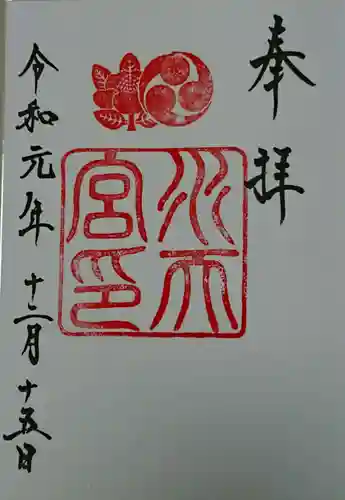 奉拝
水天宮印
令和元年十二月十五日